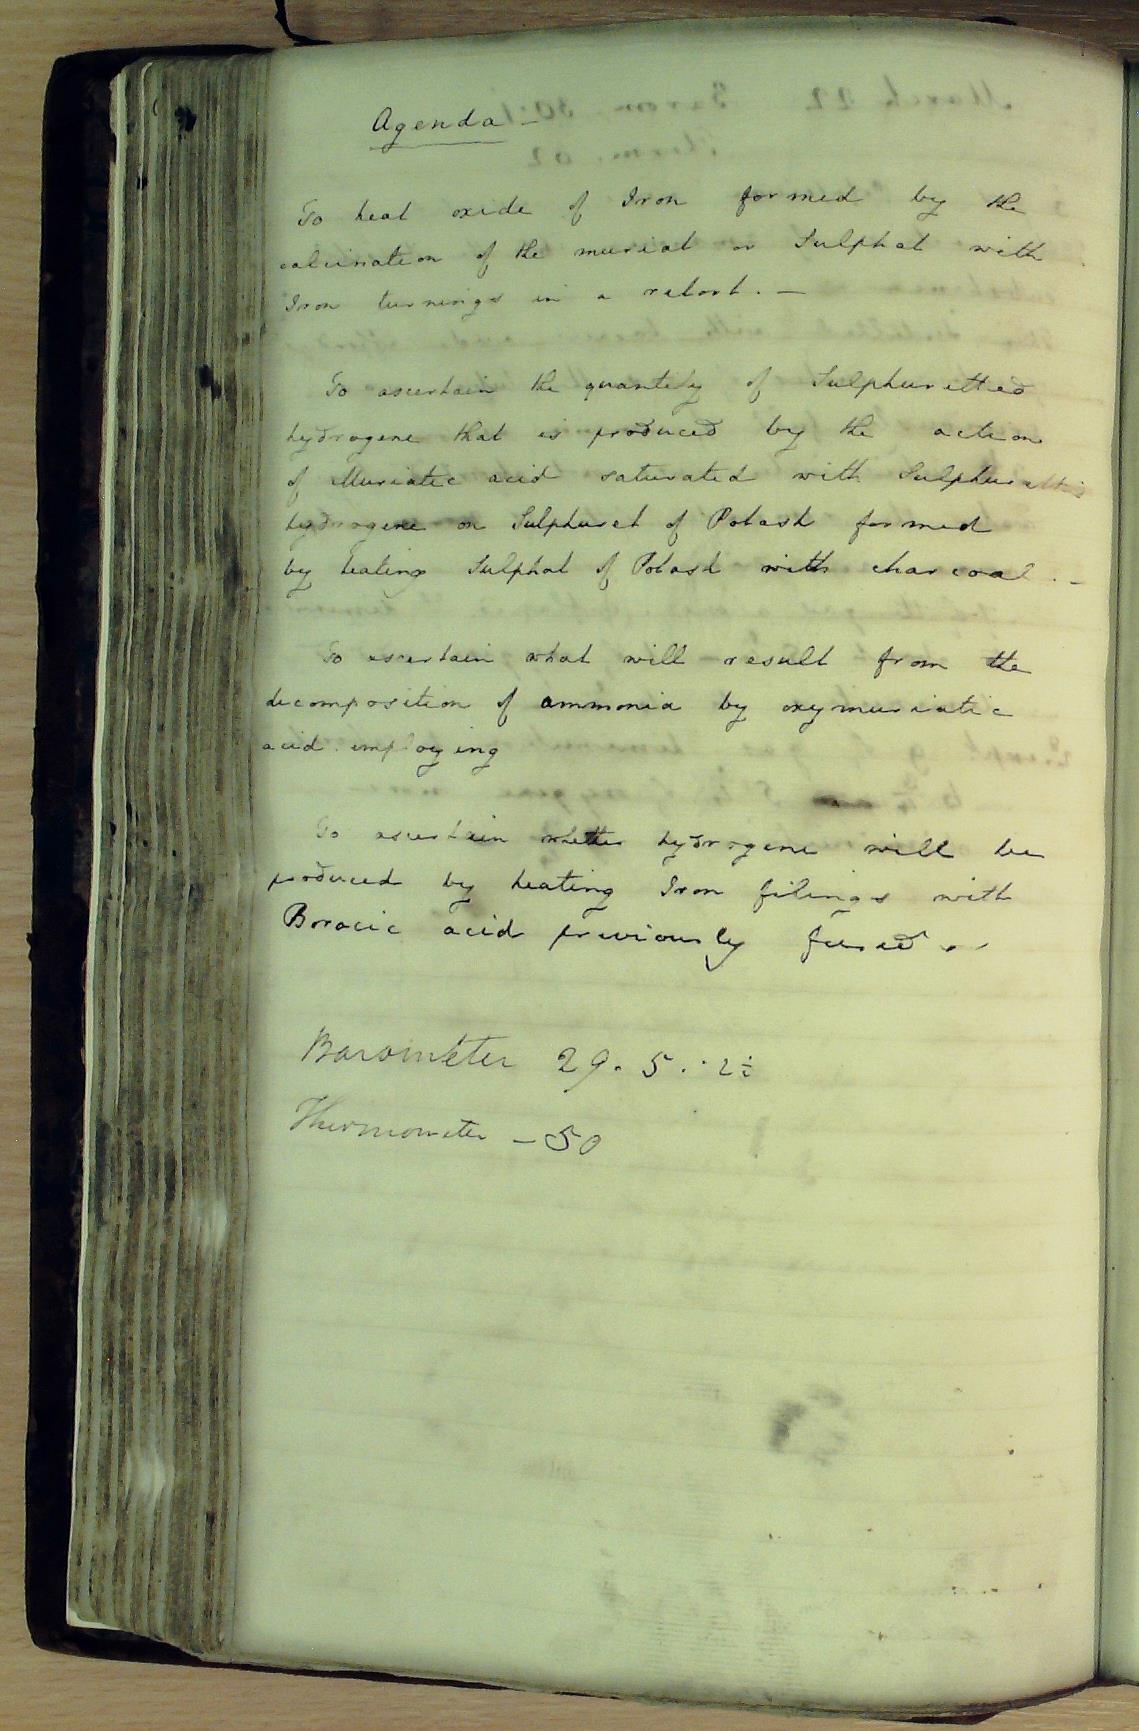 Agenda -
To heat oxide of Iron formed by the
calcination of the muriat or Sulphat with
Iron turnings in a retort. —
To ascertain the quantity of Sulphuretted
hydrogene that is produced by the action
of Muriatic acid saturated with Sulphuretted
hydrogene on Sulphuret of Potash formed
by heating Sulphat of Potash with charcoal. -
To ascertain what will result from the
decomposition of ammonia by oxymuriatic
acid employing
To ascertain whether hydrogene will be
produced by heating Iron filings with
Boracic acid previously fused. -
Barometer 29. 5.
Thermometer - 50